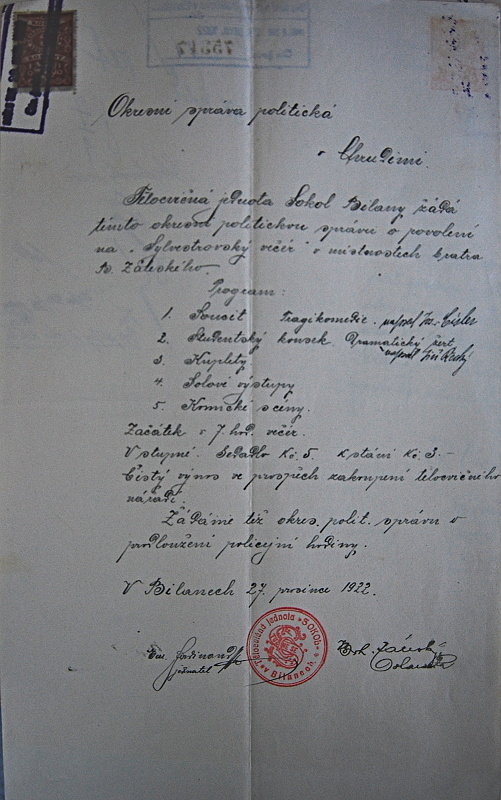 75317
Okresní správa politická
v Chrudimi.
Tělocvičná jednota Sokol Bílany žádá
tímto okresní politickou správu o povolení
na „Sylvestrovský večír" v místnostech bratra
B. Záleského.
Program:
1. Soucit Tragikomedie. napsal
2. Studentský kousek. Dramatický žert napsal Jiří
3. Kuplety
4. Solové výstupy
5. Komické scény.
Začátek v 7 hod. večír.
Vstupné. Sedadlo Kč. 5. K stání Kč. 3.–
Čistý výnos ve prospěch zakoupení tělocvičného
nářadí.
Žádáme též okres. polit. správu o
prodloužení policejní hodiny.
V Bílanech 27. prosince 1922.
Tělocvičná jednota "SOKOL"
v Bílanech.
Ferdinand
jednatel